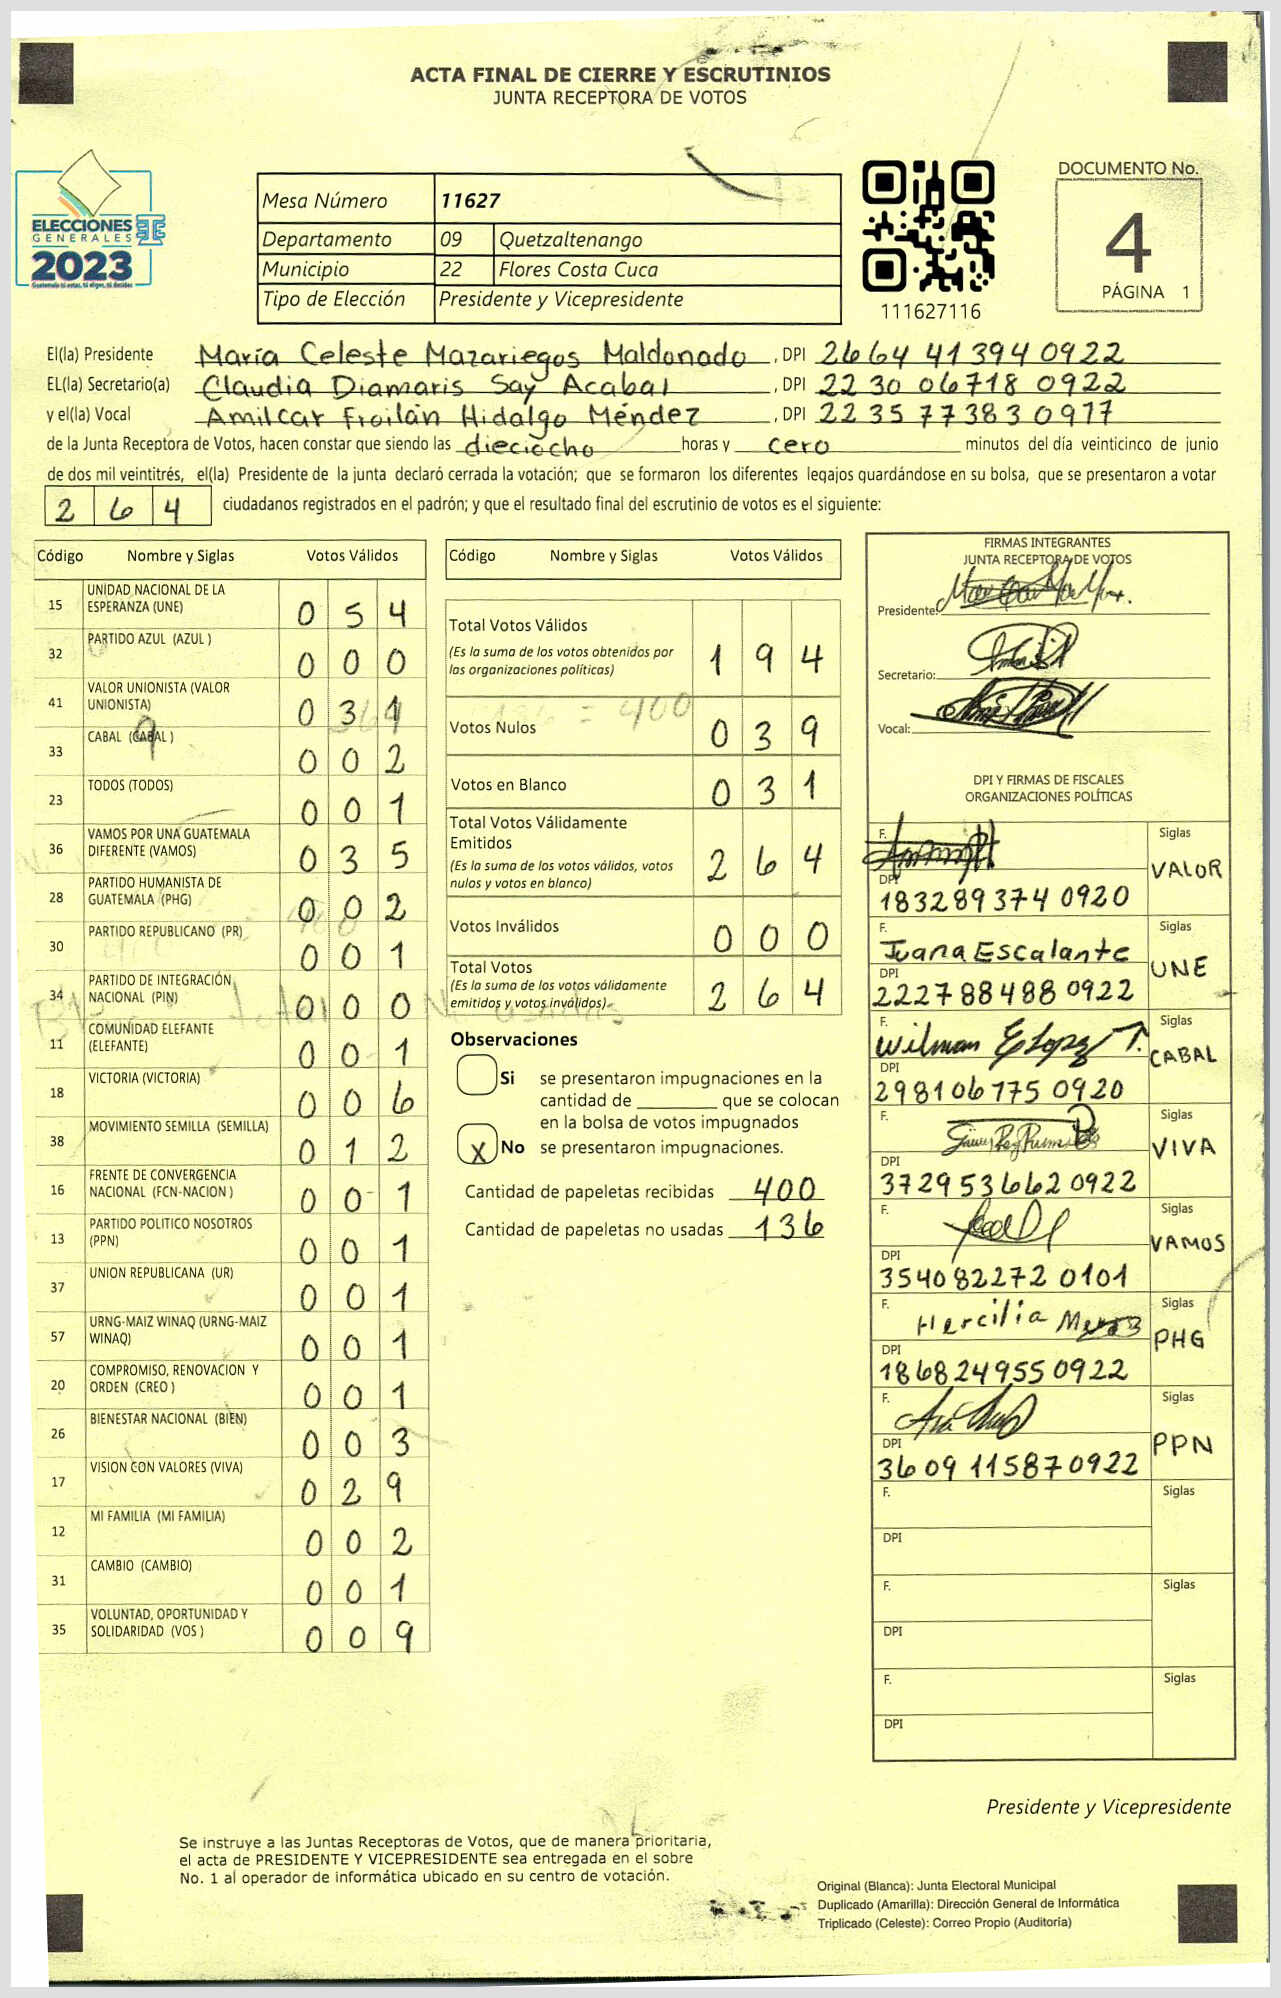 ACTA FINAL DE CIERRE Y ESCRUTINIOS
JUNTA RECEPTORA DE VOTOS
ELECCIONES
GENERALES
2023
Guatemala tú votas, tú eliges, tú decides
Mesa Número 11627
Departamento 09 Quetzaltenango
Municipio 22 Flores Costa Cuca
Tipo de Elección Presidente y Vicepresidente
111627116
DOCUMENTO No.
4
PÁGINA 1
El(la) Presidente María Celeste Mazariegos Maldonado, DPI 2664 41394 0922
EL(la) Secretario(a) Claudia Diamaris Say Acabal, DPI 2230 06718 0922
y el(la) Vocal Amilcar Froilán Hidalgo Méndez, DPI 2235 77383 0917
de la Junta Receptora de Votos, hacen constar que siendo las dieciocho horas y cero minutos del día veinticinco de junio
de dos mil veintitrés, el(la) Presidente de la junta declaró cerrada la votación; que se formaron los diferentes legajos guardándose en su bolsa, que se presentaron a votar
264 ciudadanos registrados en el padrón; y que el resultado final del escrutinio de votos es el siguiente:
Código Nombre y Siglas Votos Válidos
15 UNIDAD NACIONAL DE LA
ESPERANZA (UNE) 054
32 PARTIDO AZUL (AZUL ) 000
41 VALOR UNIONISTA (VALOR
UNIONISTA) 031
33 CABAL (CABAL ) 002
23 TODOS (TODOS) 001
36 VAMOS POR UNA GUATEMALA
DIFERENTE (VAMOS) 035
28 PARTIDO HUMANISTA DE
GUATEMALA (PHG) 002
30 PARTIDO REPUBLICANO (PR) 001
34 PARTIDO DE INTEGRACIÓN
NACIONAL (PIN) 000
11 COMUNIDAD ELEFANTE
(ELEFANTE) 001
18 VICTORIA (VICTORIA) 006
38 MOVIMIENTO SEMILLA (SEMILLA) 012
16 FRENTE DE CONVERGENCIA
NACIONAL (FCN-NACION ) 001
13 PARTIDO POLITICO NOSOTROS
(PPN) 001
37 UNION REPUBLICANA (UR) 001
57 URNG-MAIZ WINAQ (URNG-MAIZ
WINAQ) 001
20 COMPROMISO, RENOVACION Y
ORDEN (CREO ) 001
26 BIENESTAR NACIONAL (BIEN) 003
17 VISION CON VALORES (VIVA) 029
12 MI FAMILIA (MI FAMILIA) 002
31 CAMBIO (CAMBIO) 001
35 VOLUNTAD, OPORTUNIDAD Y
SOLIDARIDAD (VOS ) 009
Código Nombre y Siglas Votos Válidos
Total Votos Válidos 194
(Es la suma de los votos obtenidos por
las organizaciones políticas)
Votos Nulos 039
Votos en Blanco 031
Total Votos Válidamente
Emitidos 264
(Es la suma de los votos válidos, votos
nulos y votos en blanco)
Votos Inválidos 000
Total Votos 264
(Es la suma de los votos válidamente
emitidos y votos inválidos)
Observaciones
Si se presentaron impugnaciones en la
cantidad de ________ que se colocan
en la bolsa de votos impugnados
X No se presentaron impugnaciones.
Cantidad de papeletas recibidas 400
Cantidad de papeletas no usadas 136
FIRMAS INTEGRANTES
JUNTA RECEPTORA DE VOTOS
Presidente:
Secretario:
Vocal:
DPI Y FIRMAS DE FISCALES
ORGANIZACIONES POLÍTICAS
F. Siglas
VALOR
DPI
18328937 4 0920
F. Siglas
Juana Escalante
UNE
DPI
222788488 0922
F. Siglas
Wilman E Lopez T.
CABAL
DPI
298106775 0920
F. Siglas
VIVA
DPI
372953662 0922
F. Siglas
VAMOS
DPI
354082272 0101
F. Siglas
Hercilia
PHG
DPI
186824955 0922
F. Siglas
PPN
DPI
3609 11587 0922
F. Siglas
DPI
F. Siglas
DPI
F. Siglas
DPI
Presidente y Vicepresidente
Se instruye a las Juntas Receptoras de Votos, que de manera prioritaria,
el acta de PRESIDENTE Y VICEPRESIDENTE sea entregada en el sobre
No. 1 al operador de informática ubicado en su centro de votación.
Original (Blanca): Junta Electoral Municipal
Duplicado (Amarilla): Dirección General de Informática
Triplicado (Celeste): Correo Propio (Auditoría)